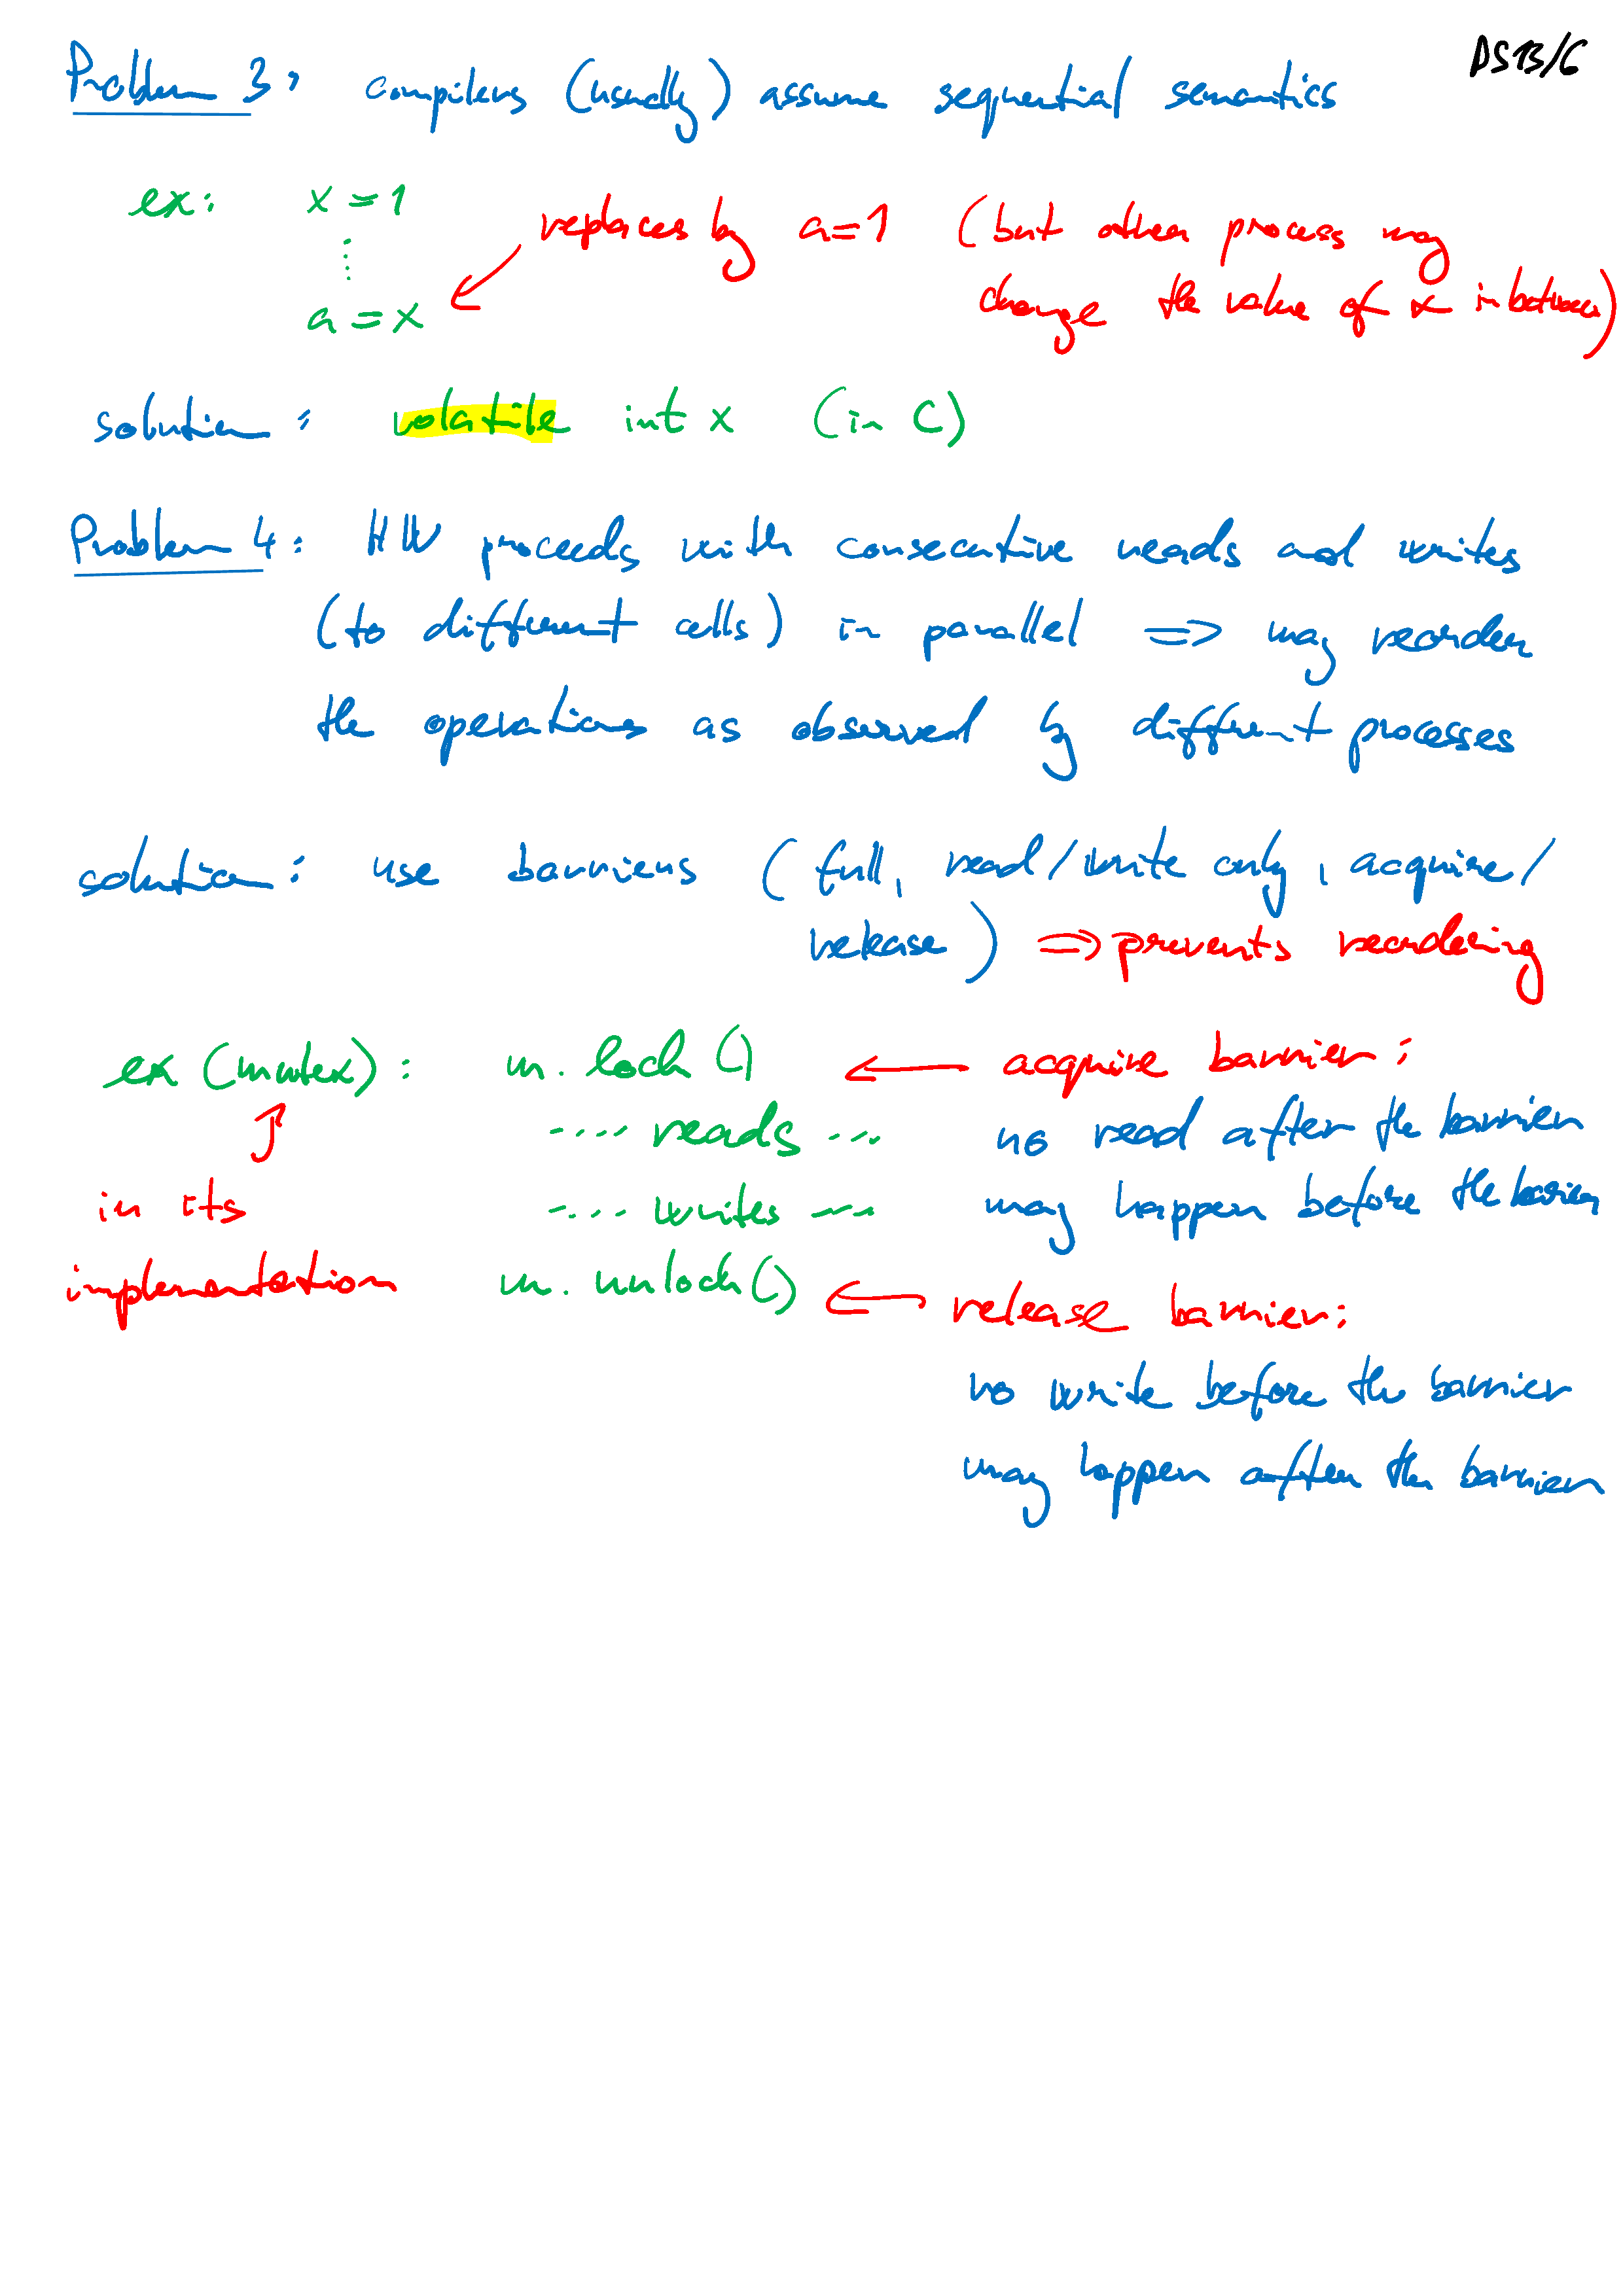 DS13/6
Problem 3: compilers (usually) assume sequential semantics
ex: x = 1
replaces by a=1 (but other process may
⋮
change the value of x in between)
a = x
solution: volatile int x (in C)
Problem 4: HW proceeds with consecutive reads and writes
(to different cells) in parallel => may reorder
the operations as observed by different processes
solution: use barriers (full, read/write only, acquire/
release) => prevents reordering
ex (mutex): m.lock() ← acquire barrier:
.... reads ... no read after the barrier
in its .... writes ... may happen before the barrier
implementation m.unlock() ← release barrier:
no write before the barrier
may happen after the barrier